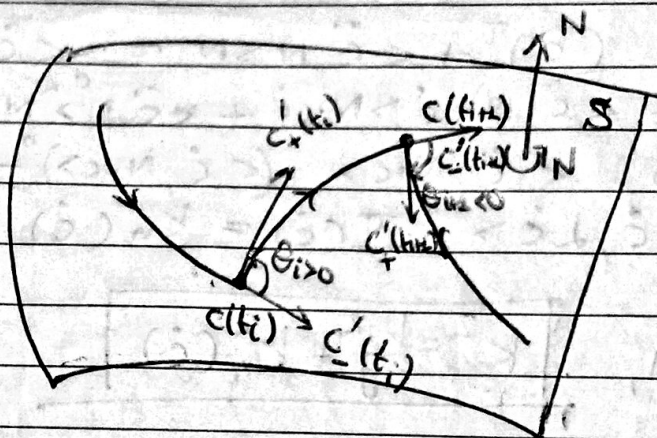 N
S
C(tᵢ₊₁)
C'₊(tᵢ)
C'₋(tᵢ₊₁)
N
θᵢ₊₁<0
C'₊(tᵢ₊₁)
θᵢ>0
C(tᵢ)
C'₋(tᵢ)